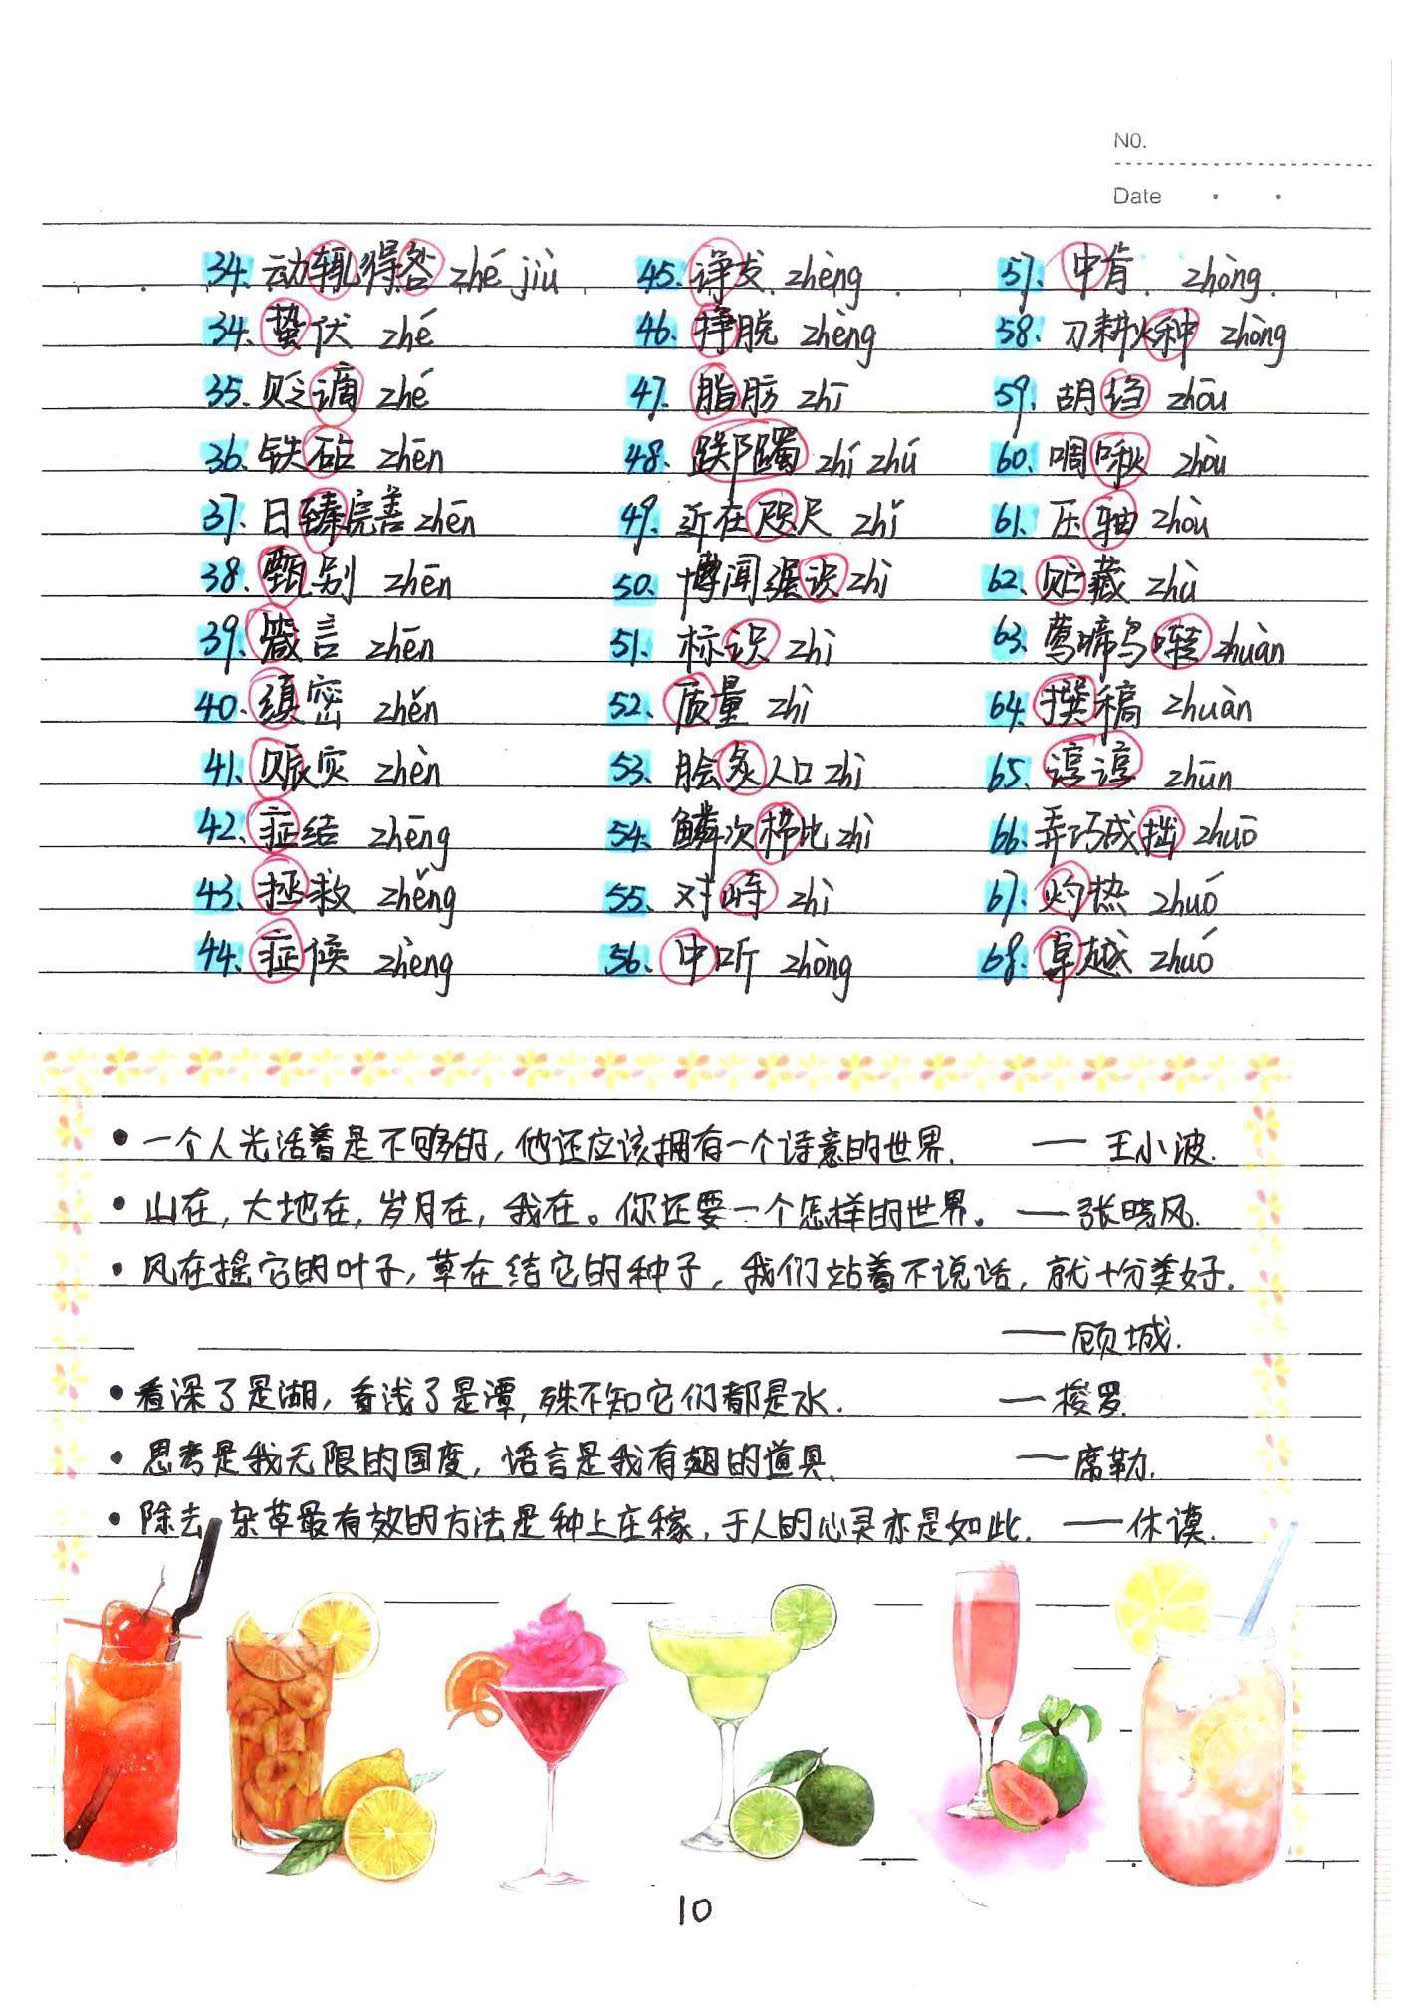 NO.
Date
34. 动辄得咎 zhé jiù
34. 蛰伏 zhé
35. 贬谪 zhé
36. 铁砧 zhēn
37. 日臻完善 zhēn
38. 甄别 zhēn
39. 箴言 zhēn
40. 缜密 zhěn
41. 赈灾 zhèn
42. 症结 zhēng
43. 拯救 zhěng
44. 症候 zhèng
45. 诤发 zhèng
46. 挣脱 zhèng
47. 脂肪 zhī
48. 踯躅 zhí zhú
49. 近在咫尺 zhǐ
50. 博闻强识 zhì
51. 标识 zhì
52. 质量 zhì
53. 脍炙人口 zhì
54. 鳞次栉比 zhì
55. 对峙 zhì
56. 中听 zhòng
57. 中肯 zhòng
58. 刀耕火种 zhòng
59. 胡诌 zhōu
60. 啁啾 zhòu
61. 压轴 zhòu
62. 贮藏 zhù
63. 莺啼鸟啭 zhuàn
64. 撰稿 zhuàn
65. 谆谆 zhūn
66. 弄巧成拙 zhuō
67. 灼热 zhuó
68. 卓越 zhuó
• 一个人光活着是不够的，他还应该拥有一个诗意的世界. —— 王小波.
• 山在，大地在，岁月在，我在。你还要一个怎样的世界。 —— 张晓风.
• 风在摇它的叶子，草在结它的种子，我们站着不说话，就十分美好.
—— 顾城.
• 看深了是湖，看浅了是潭，殊不知它们都是水. — 梭罗.
• 思考是我无限的国度，语言是我有翅的道具. —— 席勒.
• 除去杂草最有效的方法是种上庄稼，于人的心灵亦是如此. —— 休谟.
10